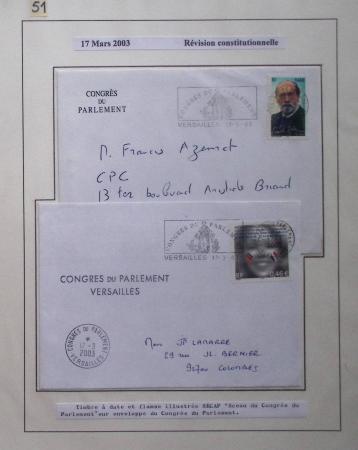 51
17 Mars 2003 Révision constitutionnelle
CONGRÈS
DU
PARLEMENT
CONGRES DU PARLEMENT
VERSAILLES 17-3-03
M. Francis
CPC
13 boulevard Aristide Briand
CONGRES DU PARLEMENT
VERSAILLES 17-3-
RF 0,46 €
CONGRES DU PARLEMENT
VERSAILLES
CONGRES DU PARLEMENT
17-3
2003
VERSAILLES
JP LAMARRE
29 rue JL. BERNIER
92700 COLOMBES
Timbre à date et flamme illustrée "Sceau du Congrès du
Parlement"sur enveloppe du Congrès du Parlement.